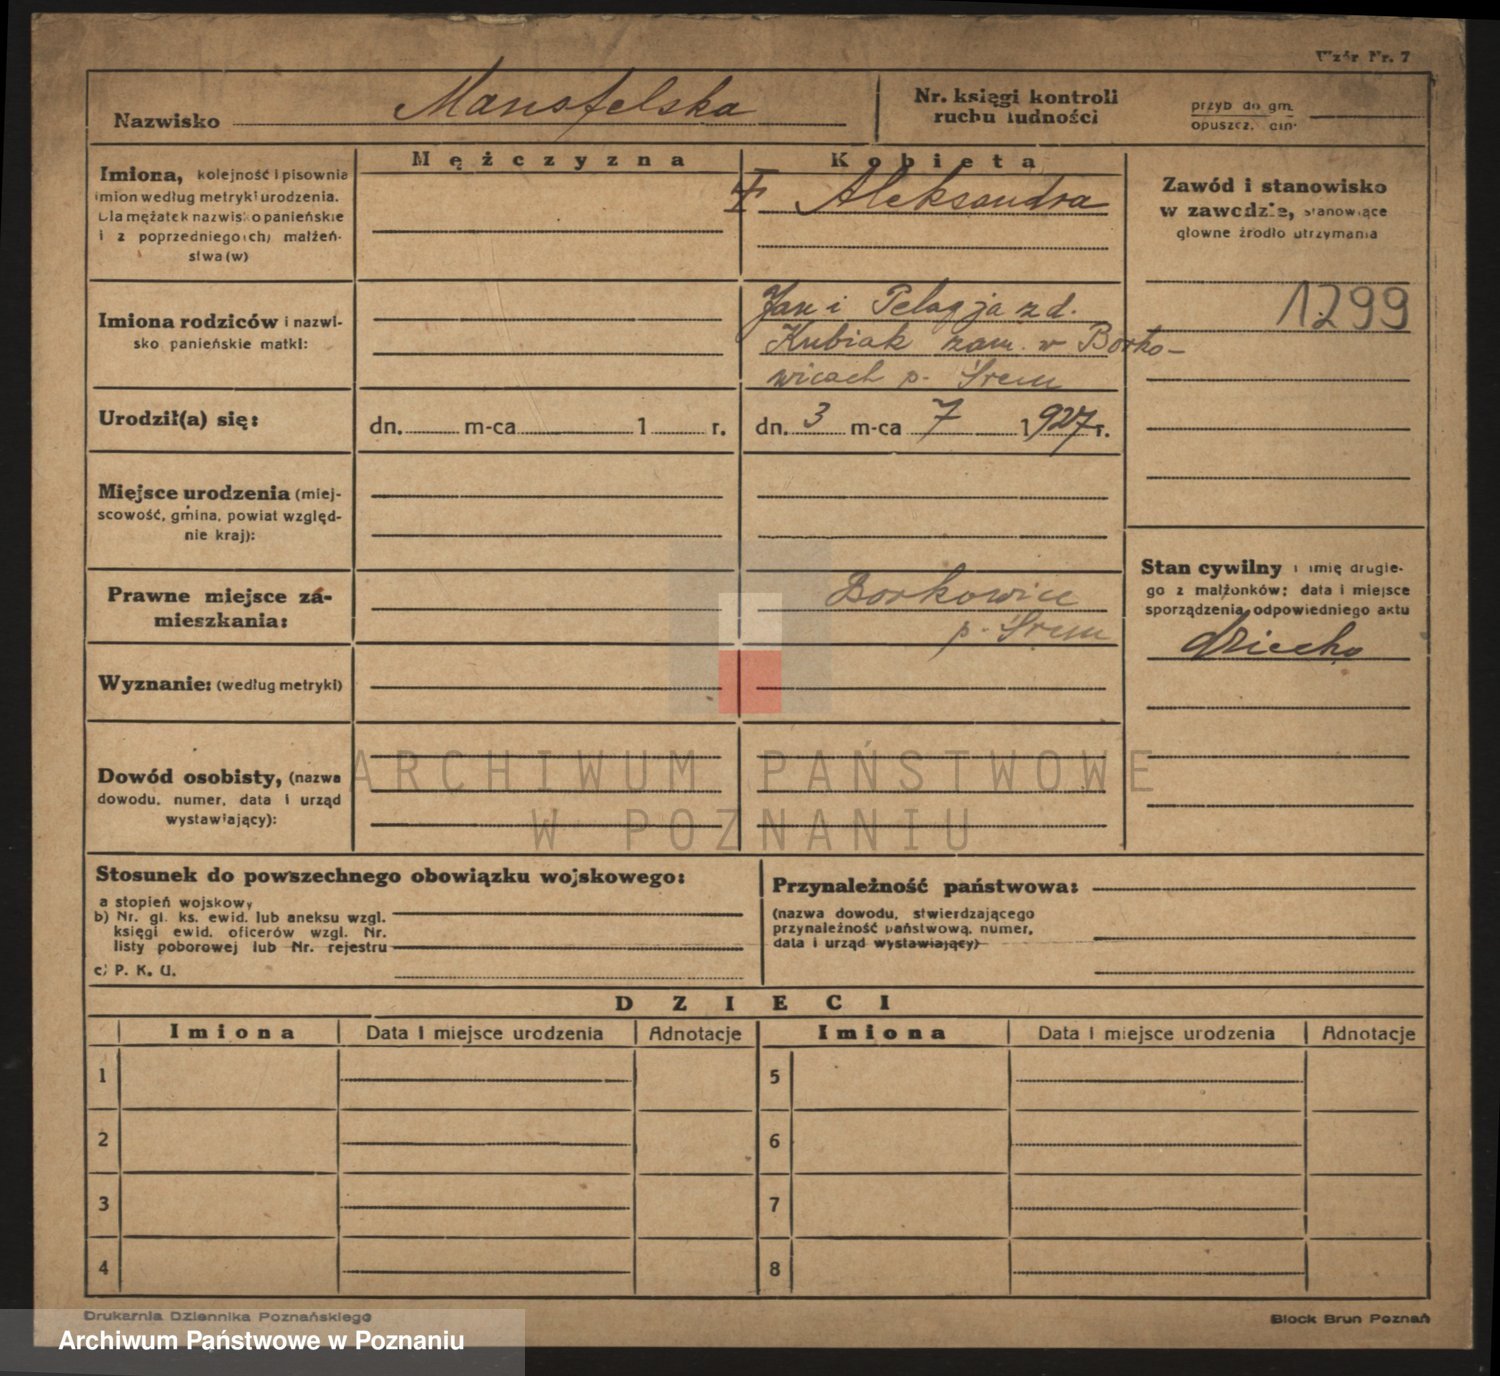 Wzór Nr. 7
Nazwisko Mansfelska
Nr. księgi kontroli
ruchu ludności
przyb do gm.
opuszcz. gm.
Mężczyzna
Kobieta
Imiona, kolejność i pisownia
imion według metryki urodzenia.
Dla mężatek nazwisko panieńskie
i z poprzedniego(ch) małżeń-
stwa(w)
Aleksandra
Zawód i stanowisko
w zawodzie, stanowiące
główne źródło utrzymania
1299
Imiona rodziców i nazwi-
sko panieńskie matki:
Jan i Pelagja z d.
Kubiak zam. w Borko-
wicach p. Śrem
Urodził(a) się:
dn. m-ca 1 r.
dn. 3 m-ca 7 1927 r.
Miejsce urodzenia (miej-
scowość, gmina, powiat względ-
nie kraj):
Prawne miejsce za-
mieszkania:
Borkowice
p. Śrem
Stan cywilny i imię drugie-
go z małżonków; data i miejsce
sporządzenia odpowiedniego aktu
dziecko
Wyznanie: (według metryki)
Dowód osobisty, (nazwa
dowodu, numer, data i urząd
wystawiający):
ARCHIWUM PAŃSTWOWE
W POZNANIU
Stosunek do powszechnego obowiązku wojskowego:
a stopień wojskowy
b) Nr. gl. ks. ewid. lub aneksu wzgl.
księgi ewid. oficerów wzgl. Nr.
listy poborowej lub Nr. rejestru
c) P. K. U.
Przynależność państwowa:
(nazwa dowodu, stwierdzającego
przynależność państwową, numer,
data i urząd wystawiający)
DZIECI
Imiona Data i miejsce urodzenia Adnotacje Imiona Data i miejsce urodzenia Adnotacje
1 5
2 6
3 7
4 8
Drukarnia Dziennika Poznańskiego
Block Brun Poznań
Archiwum Państwowe w Poznaniu